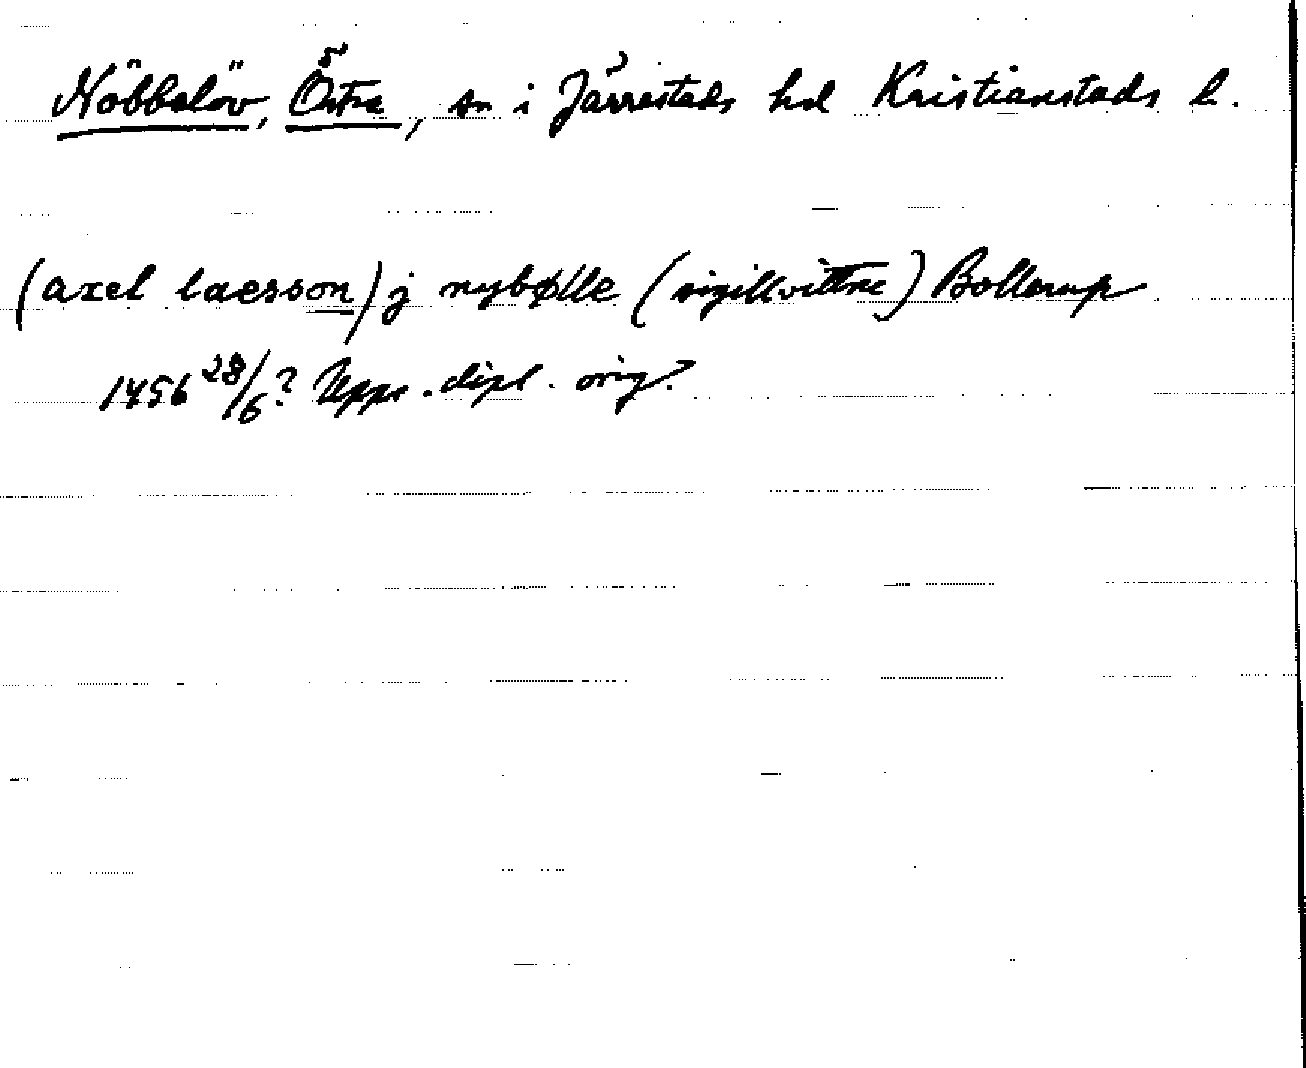 Nöbbelöv, Östra, sn i Järrestads hd Kristianstads l.
(axel laesson) j nybølle (sigillvittne) Bollerup
1456 28/6? Upps. dipl. orig?